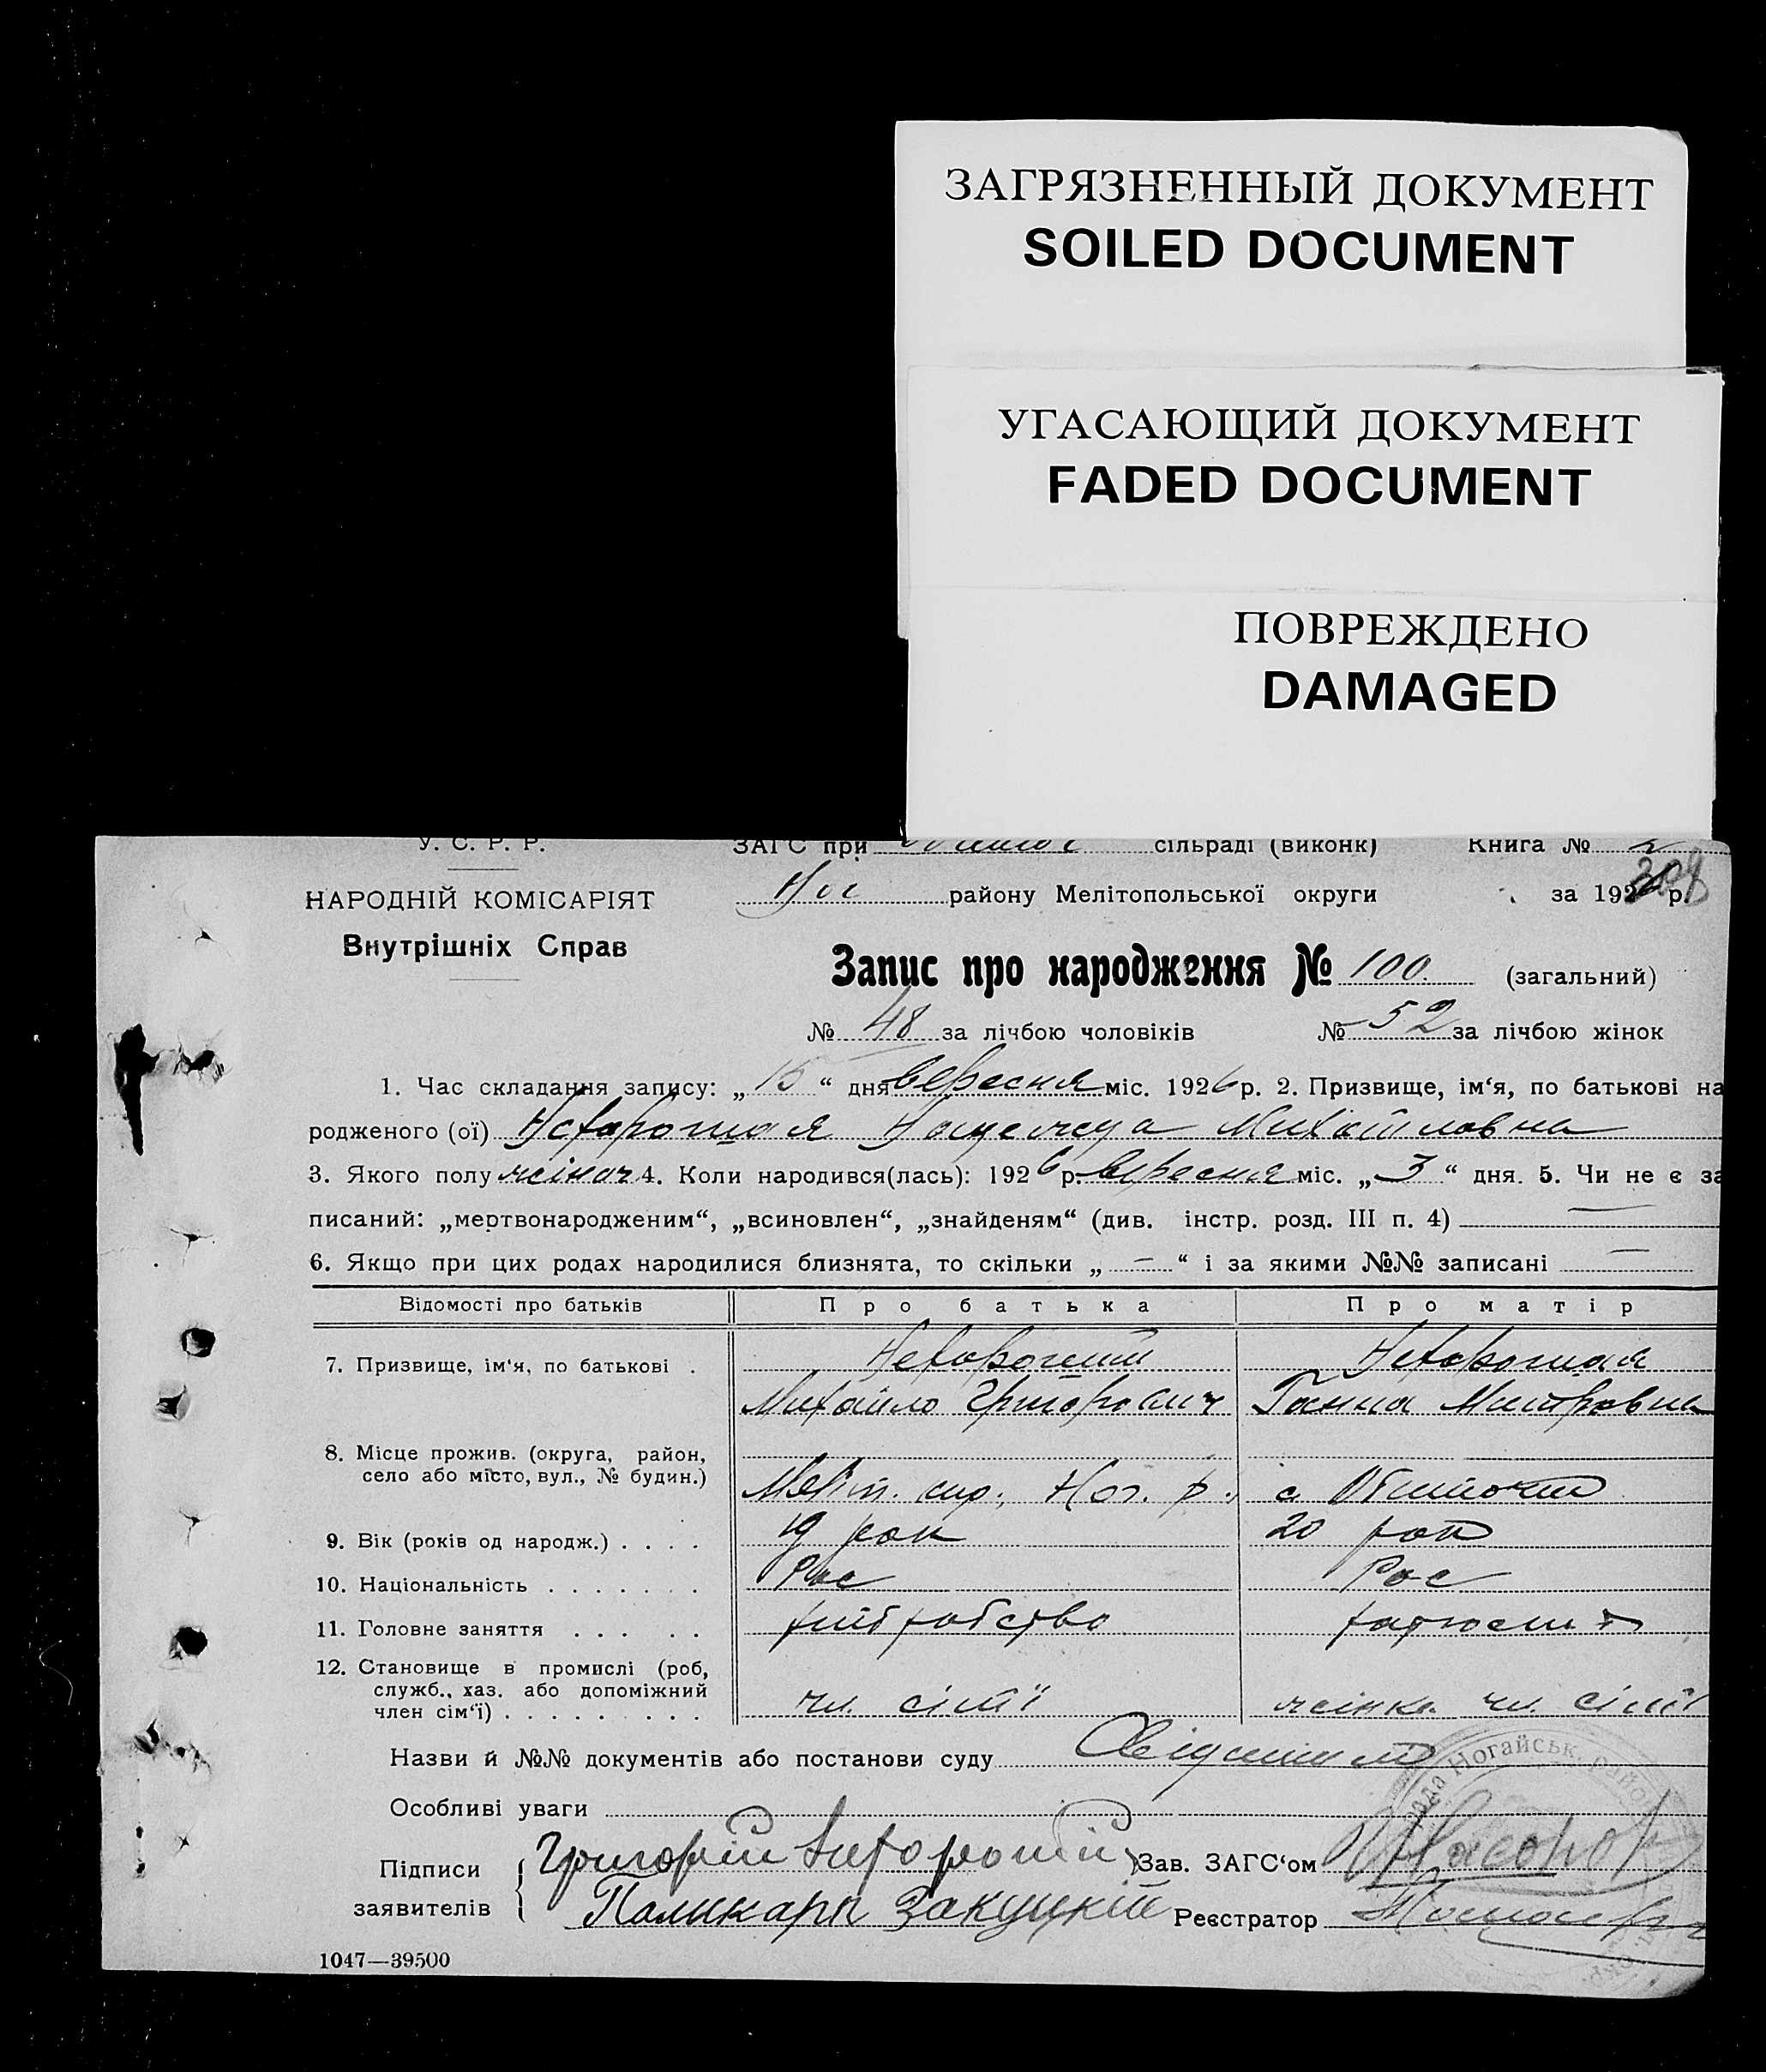 ЗАГРЯЗНЕННЫЙ ДОКУМЕНТ
SOILED DOCUMENT
УГАСАЮЩИЙ ДОКУМЕНТ
FADED DOCUMENT
ПОВРЕЖДЕНО
DAMAGED
У. С. Р. Р. ЗАГС при сільраді (виконк) Книга № 2
НАРОДНІЙ КОМІСАРІЯТ Ног району Мелітопольської округи за 1926 р.
Внутрішніх Справ
Запис про народження № 100. (загальний)
№ 48 за лічбою чоловіків № 52 за лічбою жінок
1. Час складання запису: „ 15 “ дня вересня міс. 1926 р. 2. Призвище, ім‘я, по батькові на
родженого (ої) Нехорошая Михайловна
3. Якого полу жіноч 4. Коли народився(лась): 1926 р. вересня міс. „ 3 “ дня. 5. Чи не є за
писаний: „мертвонародженим“, „всиновлен“, „знайденям“ (див. інстр. розд. III п. 4) —
6. Якщо при цих родах народилися близнята, то скільки „ — “ і за якими №№ записані —
Відомості про батьків Про батька Про матір
7. Призвище, ім‘я, по батькові . Нехороший Нехорошая
Михайло Григорович Ганна Митровна
8. Місце прожив. (округа, район,
село або місто, вул., № будин.) Меліт. окр., Ног. р., с.
9. Вік (років од народж.) . . . . 19 рок 20 рок
10. Національність . . . . . . . Рос Рос
11. Головне заняття . . . . . хліборобство
12. Становище в промислі (роб,
служб., хаз. або допоміжний
член сім‘ї) . . . . . . . . . чл. сімї жінка чл. сімї
Назви й №№ документів або постанови суду
Особливі уваги
Підписи Григорій Нехороший Зав. ЗАГС‘ом
заявителів Закуцкій Реєстратор
Ногайськ. район
1047—39500